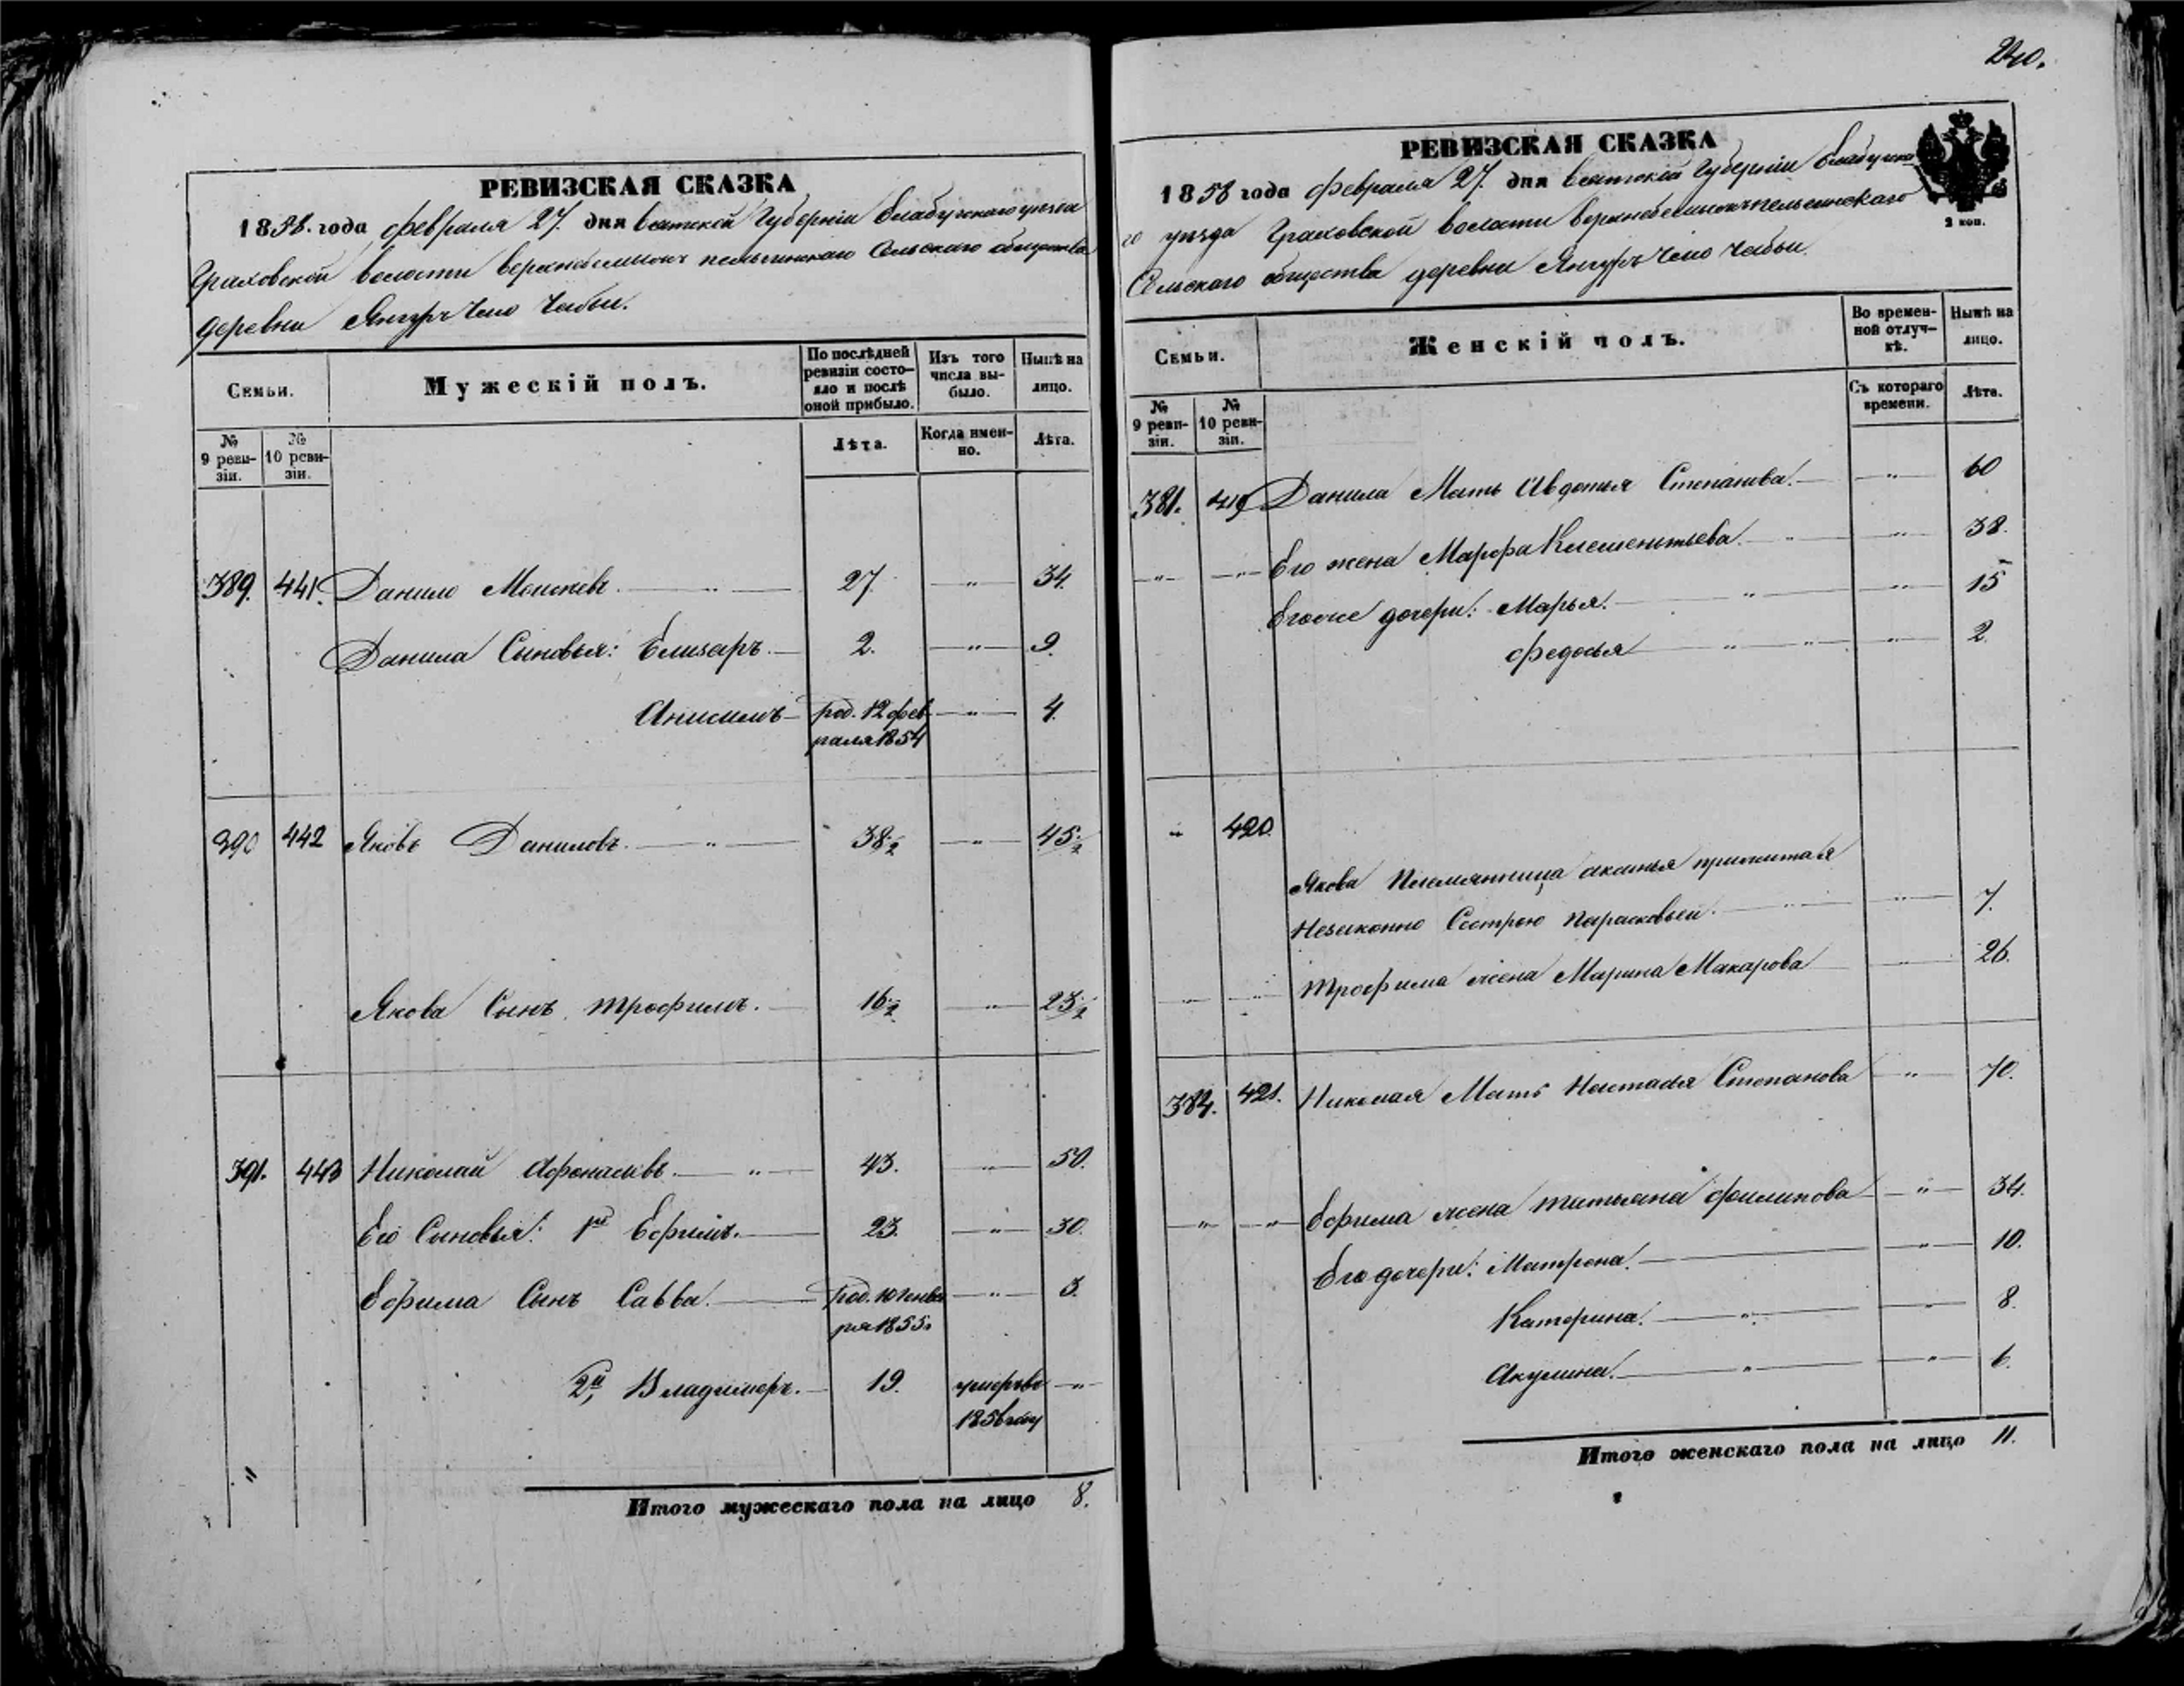 240.
РЕВИЗСКАЯ СКАЗКА
1858. года февраля 27. дня Вятской Губерніи Елабугскаго уѣзда
Граховской волости Сельскаго общества
деревни Янгуръ Чабьи.
Семьи.
Мужескій полъ.
По послѣдней ревизіи состояло и послѣ оной прибыло.
Изъ того числа выбыло.
Нынѣ на лицо.
№ 9 ревизіи.
№ 10 ревизіи.
Лѣта.
Когда именно.
Лѣта.
389. 441. Данило Моисѣевъ. — " — 27. — " — 34.
Данила Сыновья: Елизаръ. — 2. — " — 9.
Анисимъ — род. 12 февраля 1854 — " — 4.
390 442 Яковъ Даниловъ. — " — 38½ — " — 45½
Якова Сынъ Трофимъ. — 16½ — " — 23½
391. 443 Николай Афонасьевъ. — " — 43. — " — 50.
Его Сыновья: 1й Ефимъ. — 23. — " — 30.
Ефима Сынъ Савва. — род. 10 января 1855. — " — 3.
2й, Владимеръ. — 19. умеръ въ 1856 году — " —
Итого мужескаго пола на лицо 8.
РЕВИЗСКАЯ СКАЗКА
1858 года февраля 27. дня Вятской Губерніи Елабугска
го уѣзда Граховской волости
Сельскаго общества деревни Янгуръ Чабьи.
2 коп.
Семьи.
Женскій полъ.
Во временной отлучкѣ.
Нынѣ на лицо.
№ 9 ревизіи.
№ 10 ревизіи.
Съ котораго времени.
Лѣта.
381. 419 Данила Мать Авдотья Степанова. — " — 60
— " — — " — Его жена Марфа Клементьева. — " — 38.
Его же дочери: Марья. — " — 15
Федосья — " — 2.
" 420.
Якова Племянница Акинья прижитая
незаконно Сестрою Парасковьей. — " — 7.
— " — — " — Трофима жена Марина Макарова — " — 26.
384. 421. Николая Мать Настасья Степанова — " — 70.
— " — — " — Ефима жена Татьяна Филипова — " — 34.
Его дочери: Матрена. — " — 10.
Катерина. — " — 8.
Акулина. — " — 6.
Итого женскаго пола на лицо 11.